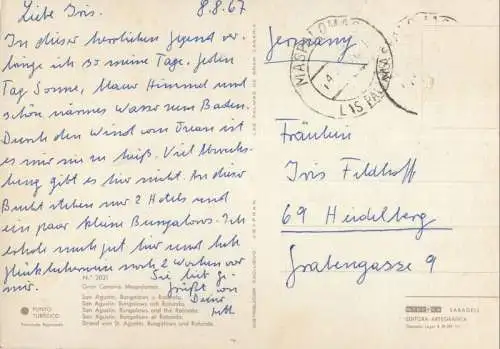 Liebe Iris. 8.8.67
In dieser herrlichen Gegend ver-
bringe ich so meine Tage. Jeden
Tag Sonne, blauer Himmel und
schön warmes Wasser zum Baden.
Durch den Wind vom Ozean ist
es mir nie zu heiß. Viel Abwechs-
lung gibt es hier nicht. An dieser
Bucht stehen nur 2 Hotels und
ein paar kleine Bungalows. Ich
erhole mich gut hier und hab
glücklicherweise noch 2 Wochen vor
mir. Sei lieb ge-
grüßt von
Deiner
Germany
MASPALOMAS
LAS PALMAS
Fräulein
Iris Feldhoff
69 Heidelberg
Grabengasse 9
N.º 2021
Gran Canaria Maspalomas.
San Agustín. Bungalows y Rotonda.
San Agustin. Bungalows och Rotonda.
San Agustin. Bungalows and the Rotonda.
San Agustin. Bungalows et Rotonda.
Strand von St. Agustin. Bungalows und Rotonda.
PUNTO
TURÍSTICO
SABADELL
EDITORA ARTEGRAFICA